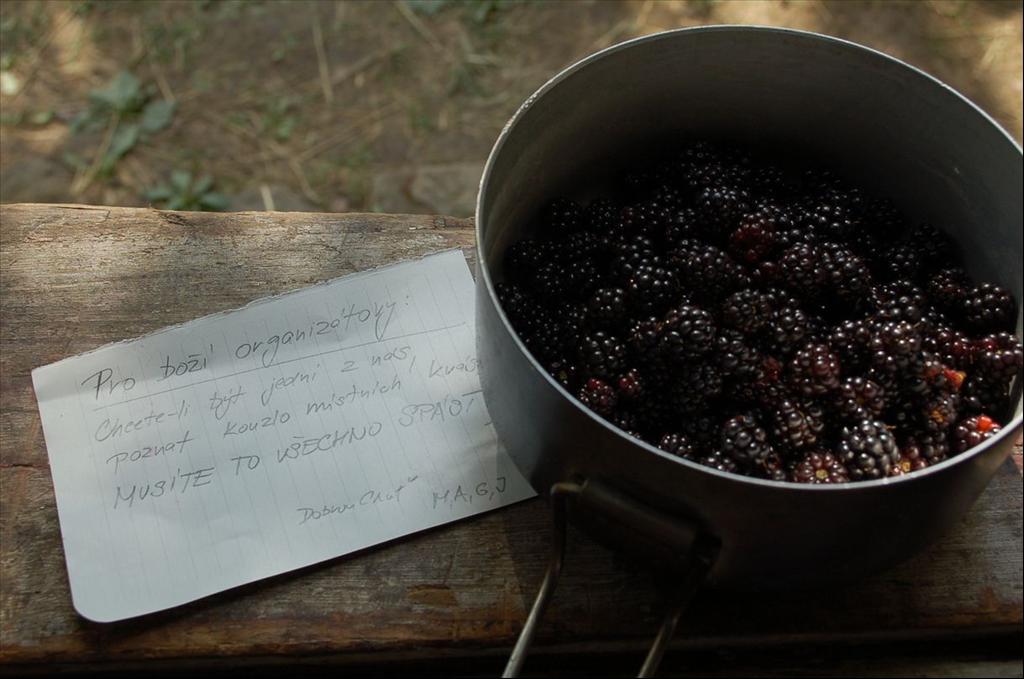 Pro boží organizátory:
Chcete-li být jedni z nás,
poznat kouzlo místních
MUSÍTE TO VŠECHNO SPÁST
Dobrou Chuť M, A, G, J